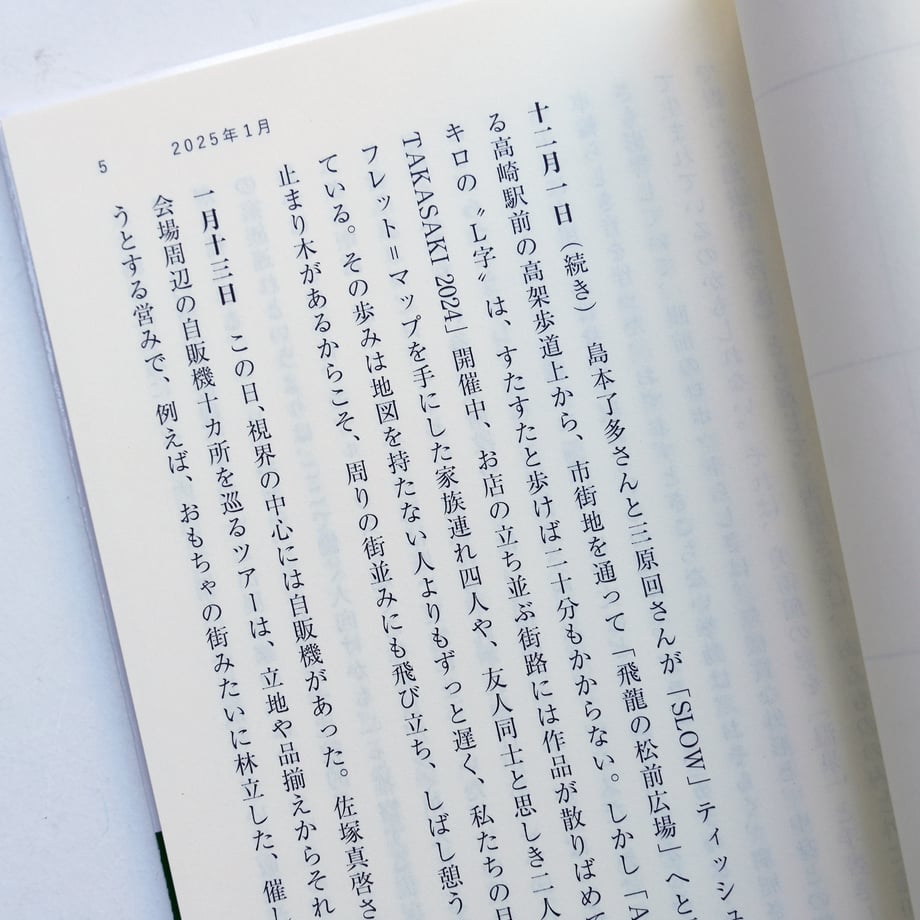 5 2025年1月
十二月一日（続き） 島本了多さんと三原回さんが「SLOW」ティッシュ
る高崎駅前の高架歩道上から、市街地を通って「飛龍の松前広場」へと
キロの〝L字〟は、すたすたと歩けば二十分もかからない。しかし「A
TAKASAKI 2024」開催中、お店の立ち並ぶ街路には作品が散りばめ
フレット＝マップを手にした家族連れ四人や、友人同士と思しき二人
ている。その歩みは地図を持たない人よりもずっと遅く、私たちの日
止まり木があるからこそ、周りの街並みにも飛び立ち、しばし憩う
一月十三日 この日、視界の中心には自販機があった。佐塚真啓さ
会場周辺の自販機十カ所を巡るツアーは、立地や品揃えからそれ
うとする営みで、例えば、おもちゃの街みたいに林立した、催し